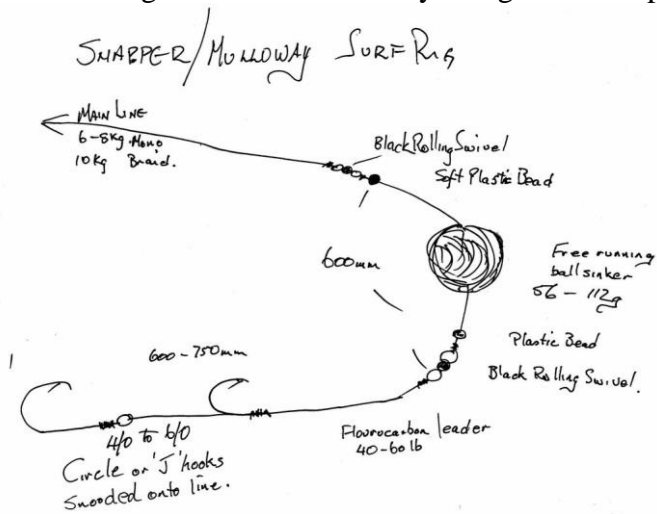 SNAPPER/MULLOWAY SURF RIG
MAIN LINE
6-8Kg Mono
10Kg Braid.
Black Rolling Swivel
Soft Plastic Bead
600mm
Free running
ball sinker
56 - 112g
Plastic Bead
Black Rolling Swivel.
600-750mm
Flourocarbon leader
40-60 lb
4/0 to 6/0
Circle or 'J' hooks
snooded onto line.